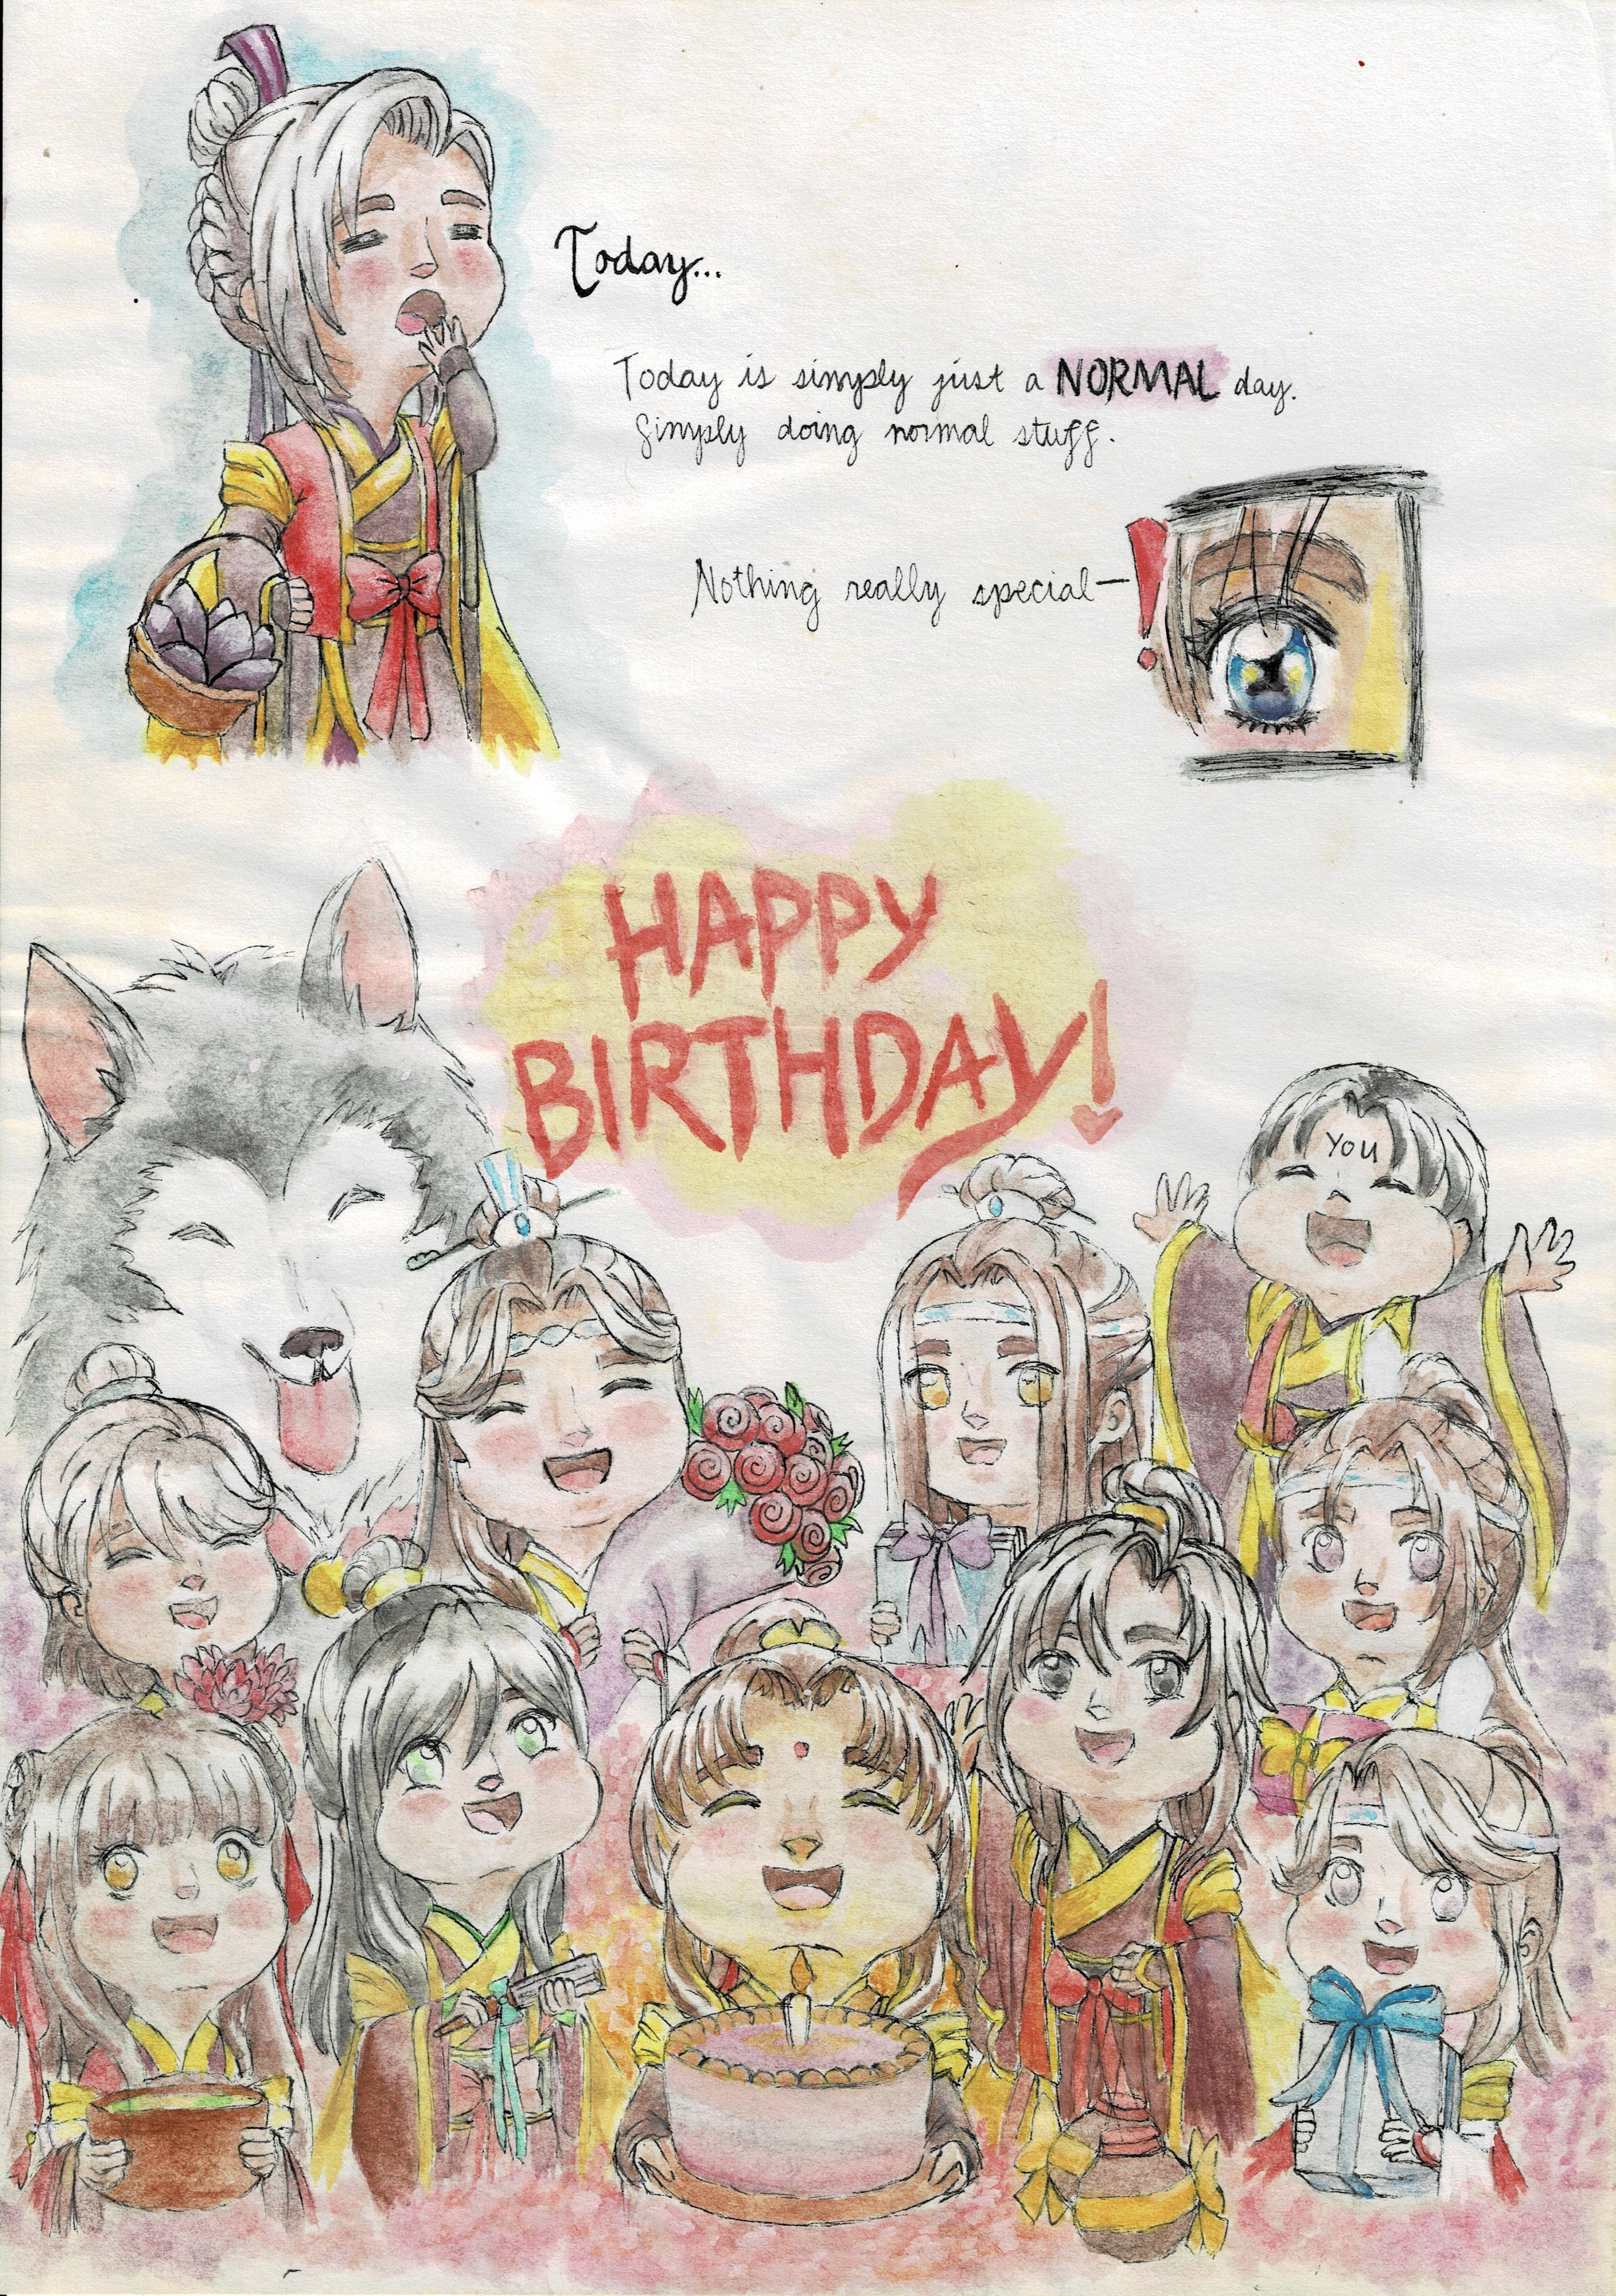 Today...
Today is simply just a NORMAL day.
Simply doing normal stuff.
Nothing really special—
!
HAPPY
BIRTHDAY!
YOU